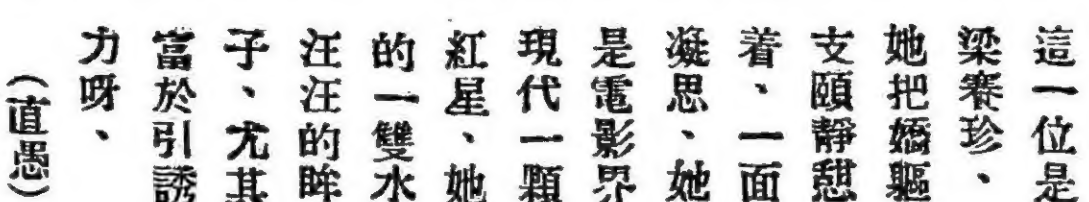 這一位是
梁賽珍、
她把嬌軀
支頤靜憇
着、一面
凝思、她
是電影界
現代一顆
紅星、她
的一雙水
汪汪的眸
子、尤其
富於引誘
力呀、
(直愚)